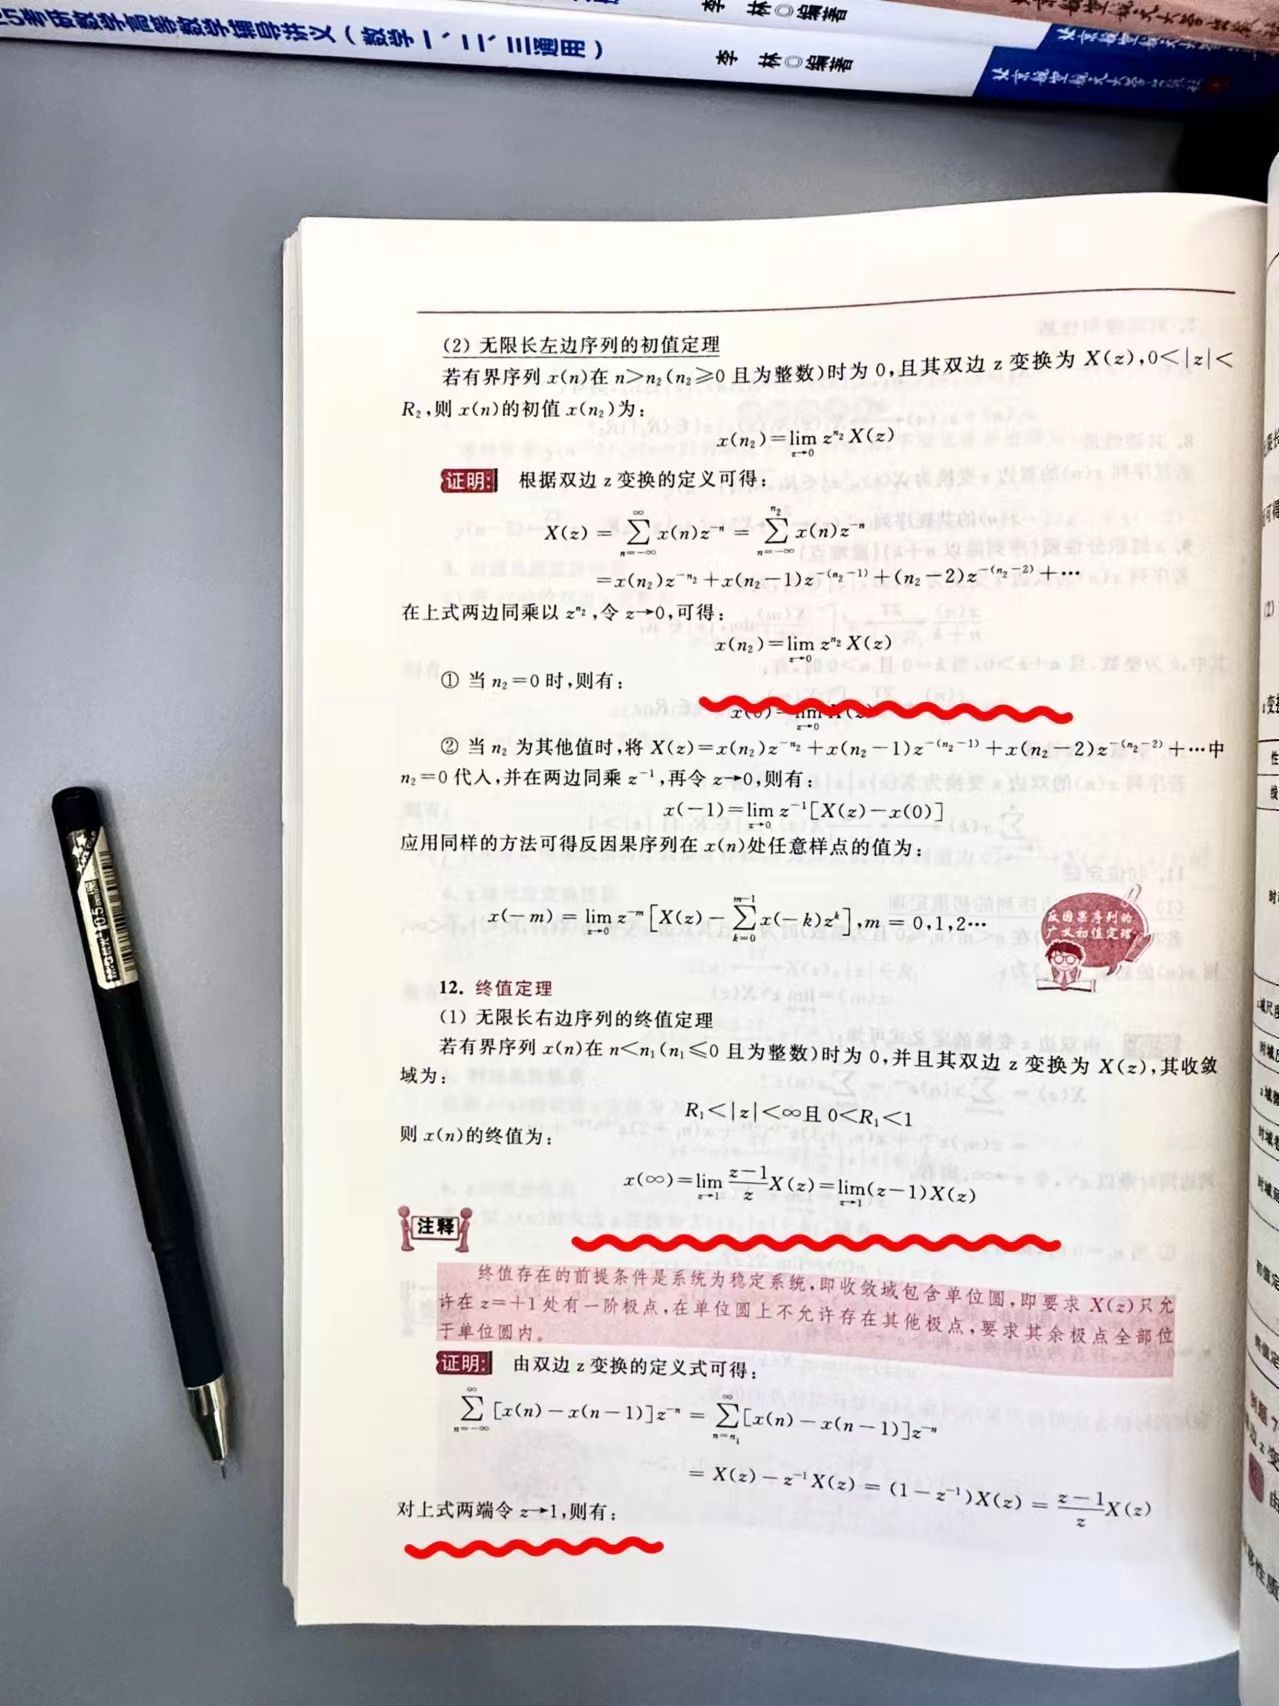 考研数学高等数学辅导讲义（数学一、二、三通用）
李 林◎编著
李 林◎编著
(2) 无限长左边序列的初值定理
若有界序列 x(n)在 n>n₂(n₂≥0 且为整数)时为 0,且其双边 z 变换为 X(z),0<|z|<
R₂,则 x(n)的初值 x(n₂)为:
x(n₂)=lim z^n₂ X(z)
z→0
证明: 根据双边 z 变换的定义可得:
X(z) = ∑_{n=-∞}^{∞} x(n)z^{-n} = ∑_{n=-∞}^{n₂} x(n)z^{-n}
=x(n₂)z^{-n₂}+x(n₂-1)z^{-(n₂-1)}+(n₂-2)z^{-(n₂-2)}+⋯
在上式两边同乘以 z^{n₂},令 z→0,可得:
x(n₂)=lim z^{n₂} X(z)
z→0
① 当 n₂=0 时,则有:
x(0)=lim X(z)
z→0
② 当 n₂ 为其他值时,将 X(z)=x(n₂)z^{-n₂}+x(n₂-1)z^{-(n₂-1)}+x(n₂-2)z^{-(n₂-2)}+⋯中
n₂=0 代入,并在两边同乘 z^{-1},再令 z→0,则有:
x(-1)=lim z^{-1}[X(z)-x(0)]
z→0
应用同样的方法可得反因果序列在 x(n)处任意样点的值为:
x(-m) = lim_{z→0} z^{-m}[X(z)-∑_{k=0}^{m-1} x(-k)z^k],m = 0,1,2⋯
反因果序列的
广义初值定理
12. 终值定理
(1) 无限长右边序列的终值定理
若有界序列 x(n)在 n<n₁(n₁≤0 且为整数)时为 0,并且其双边 z 变换为 X(z),其收敛
域为:
R₁<|z|<∞且 0<R₁<1
则 x(n)的终值为:
x(∞)=lim_{z→1} \frac{z-1}{z}X(z)=lim_{z→1}(z-1)X(z)
注释
终值存在的前提条件是系统为稳定系统,即收敛域包含单位圆,即要求 X(z)只允
许在 z=+1 处有一阶极点,在单位圆上不允许存在其他极点,要求其余极点全部位
于单位圆内。
证明: 由双边 z 变换的定义式可得:
∑_{n=-∞}^{∞} [x(n)-x(n-1)]z^{-n} = ∑_{n=n₁}^{∞}[x(n)-x(n-1)]z^{-n}
= X(z)-z^{-1}X(z) = (1-z^{-1})X(z) = \frac{z-1}{z}X(z)
对上式两端令 z→1,则有: